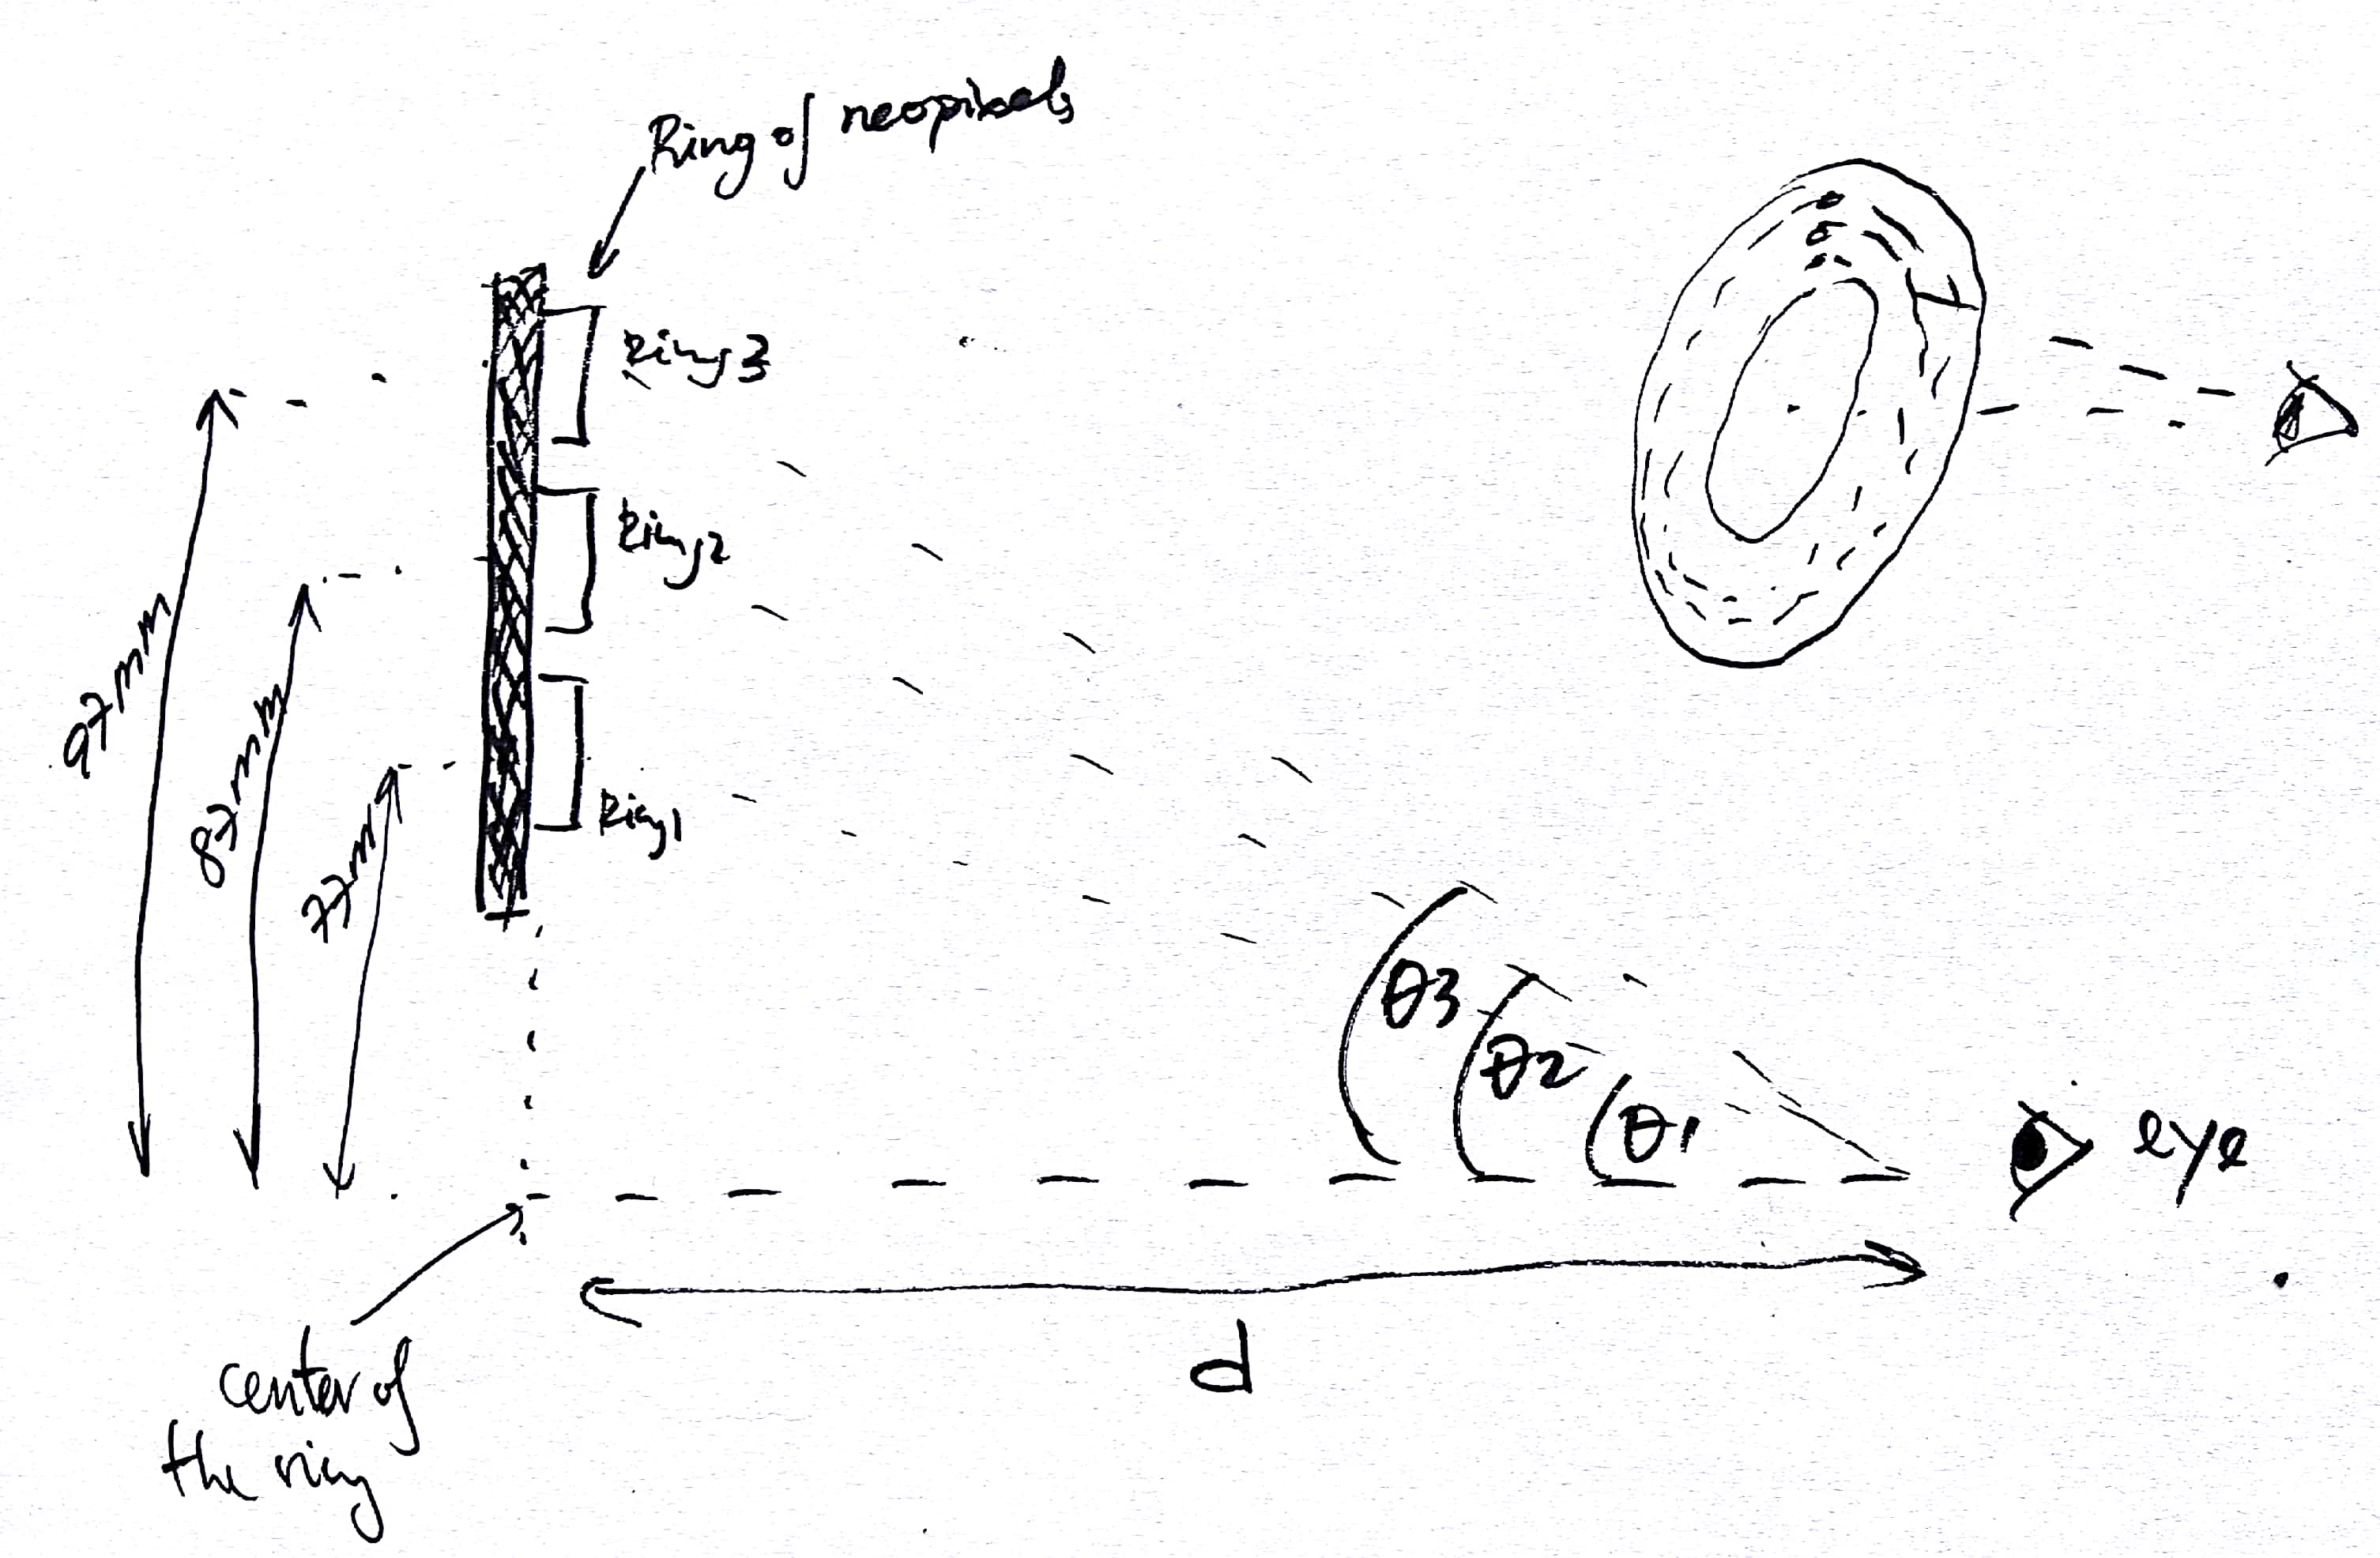 Ring of neopixels
Ring3
Ring2
Ring1
97mm
87mm
77mm
θ3
θ2
θ1
eye
d
center of
the ring